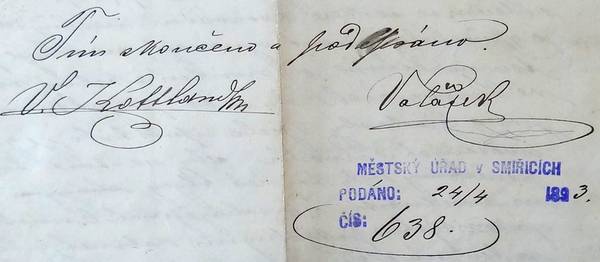 Tím skončeno a podepsáno.
V. Kottland
Valášek
MĚSTSKÝ ÚŘAD v SMIŘICÍCH
PODÁNO: 24/4 1893.
ČÍS: 638.